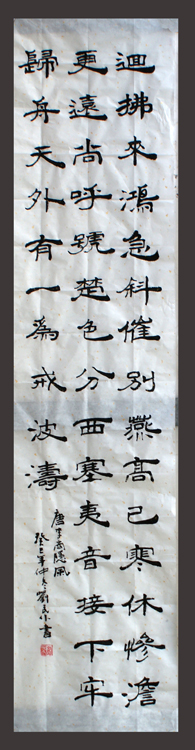 迴拂來鴻急斜催別燕高已寒休慘澹
更遠尚呼號楚色分西塞夷音接下牢
歸舟天外有一為戒波濤
唐李商隱風
癸巳年仲冬劉
書